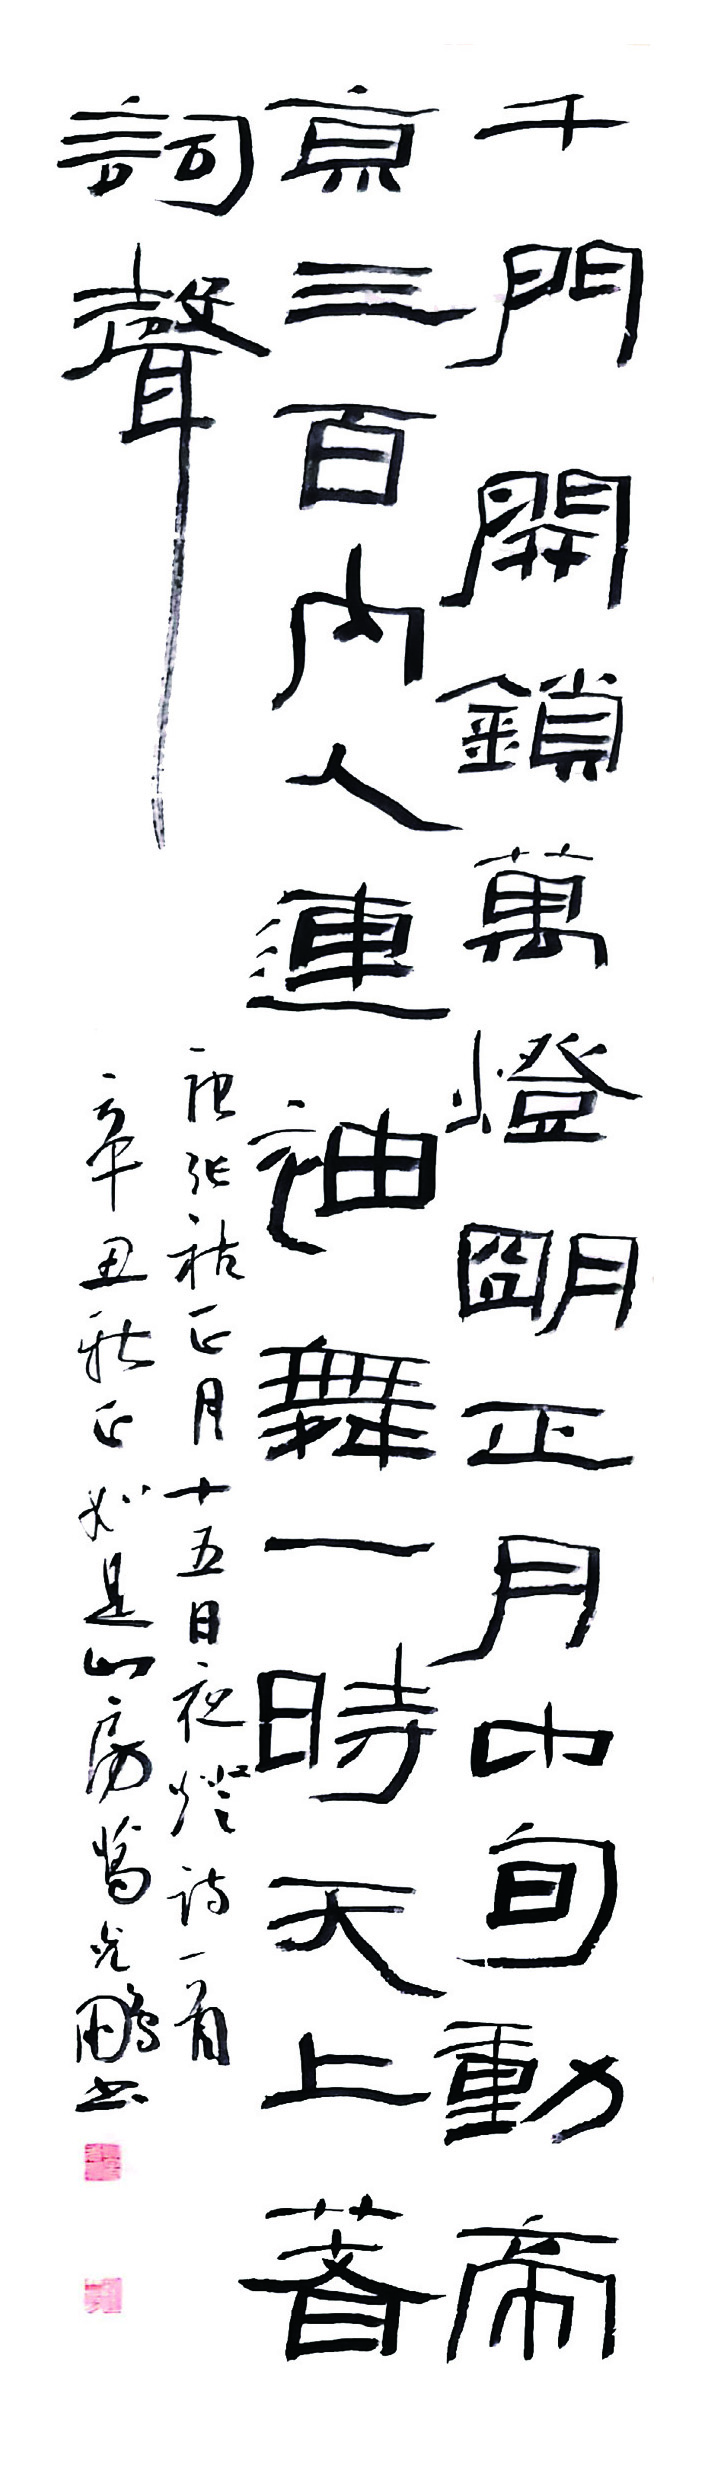 千門開鎖萬燈明正月中旬動帝
京三百內人連袖舞一時天上著
詞聲
唐張祜正月十五日夜燈詩一首
辛丑秋正如是山房 光鵬书